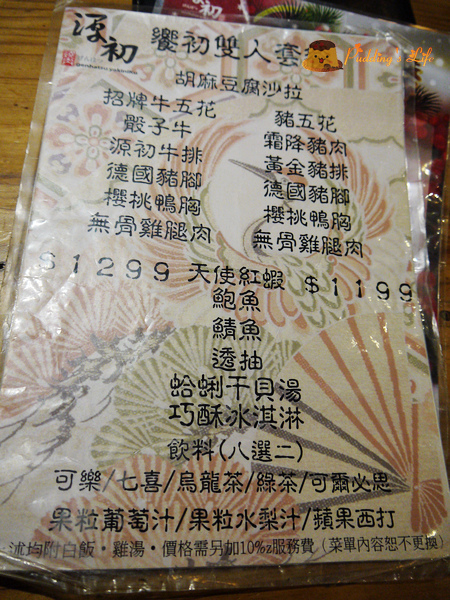 源初
饗初雙人套
Pudding's Life
胡麻豆腐沙拉
招牌牛五花
骰子牛
源初牛排
德國豬腳
櫻桃鴨胸
無骨雞腿肉
$1299
豬五花
霜降豬肉
黃金豬排
德國豬腳
櫻桃鴨胸
無骨雞腿肉
$1199
天使紅蝦
鮑魚
鯖魚
透抽
蛤蜊干貝湯
巧酥冰淇淋
飲料(八選二)
可樂/七喜/烏龍茶/綠茶/可爾必思
果粒葡萄汁/果粒水梨汁/蘋果西打
沭均附白飯・雞湯・價格需另加10%z服務費（菜單內容恕不更換）